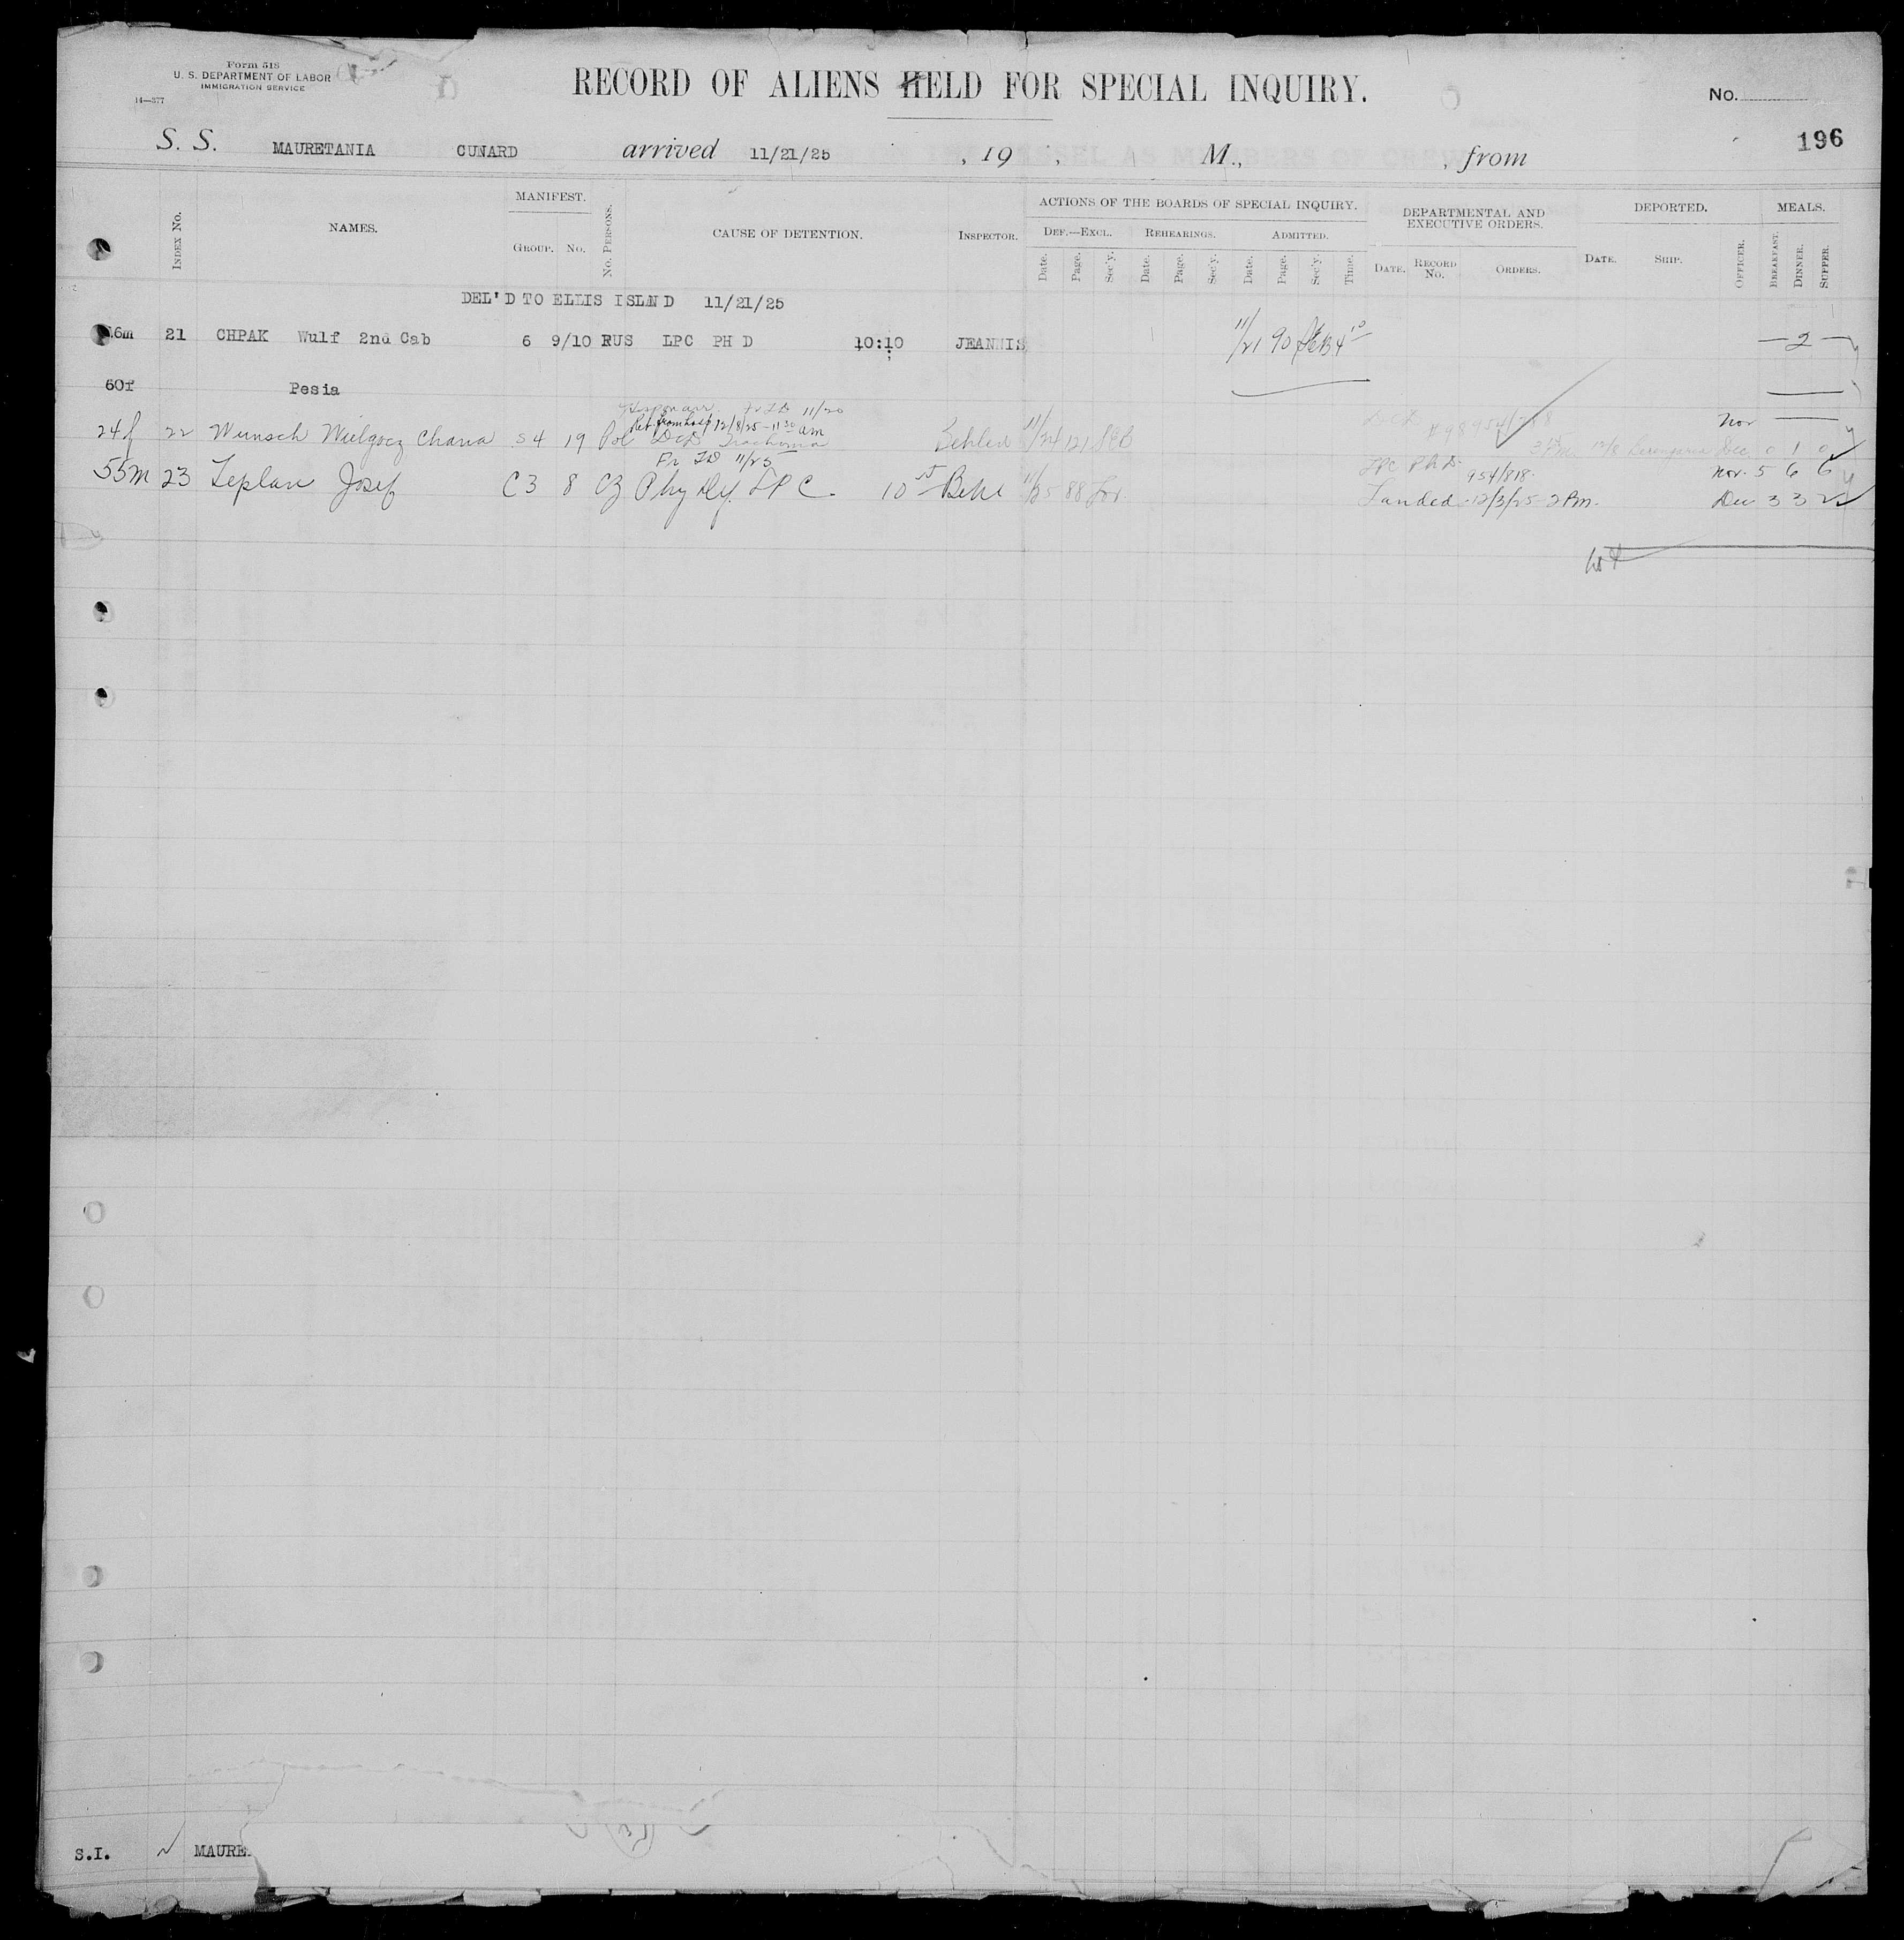 Form 518
U. S. DEPARTMENT OF LABOR
IMMIGRATION SERVICE
14—377
RECORD OF ALIENS HELD FOR SPECIAL INQUIRY.
No.
196
S. S. MAURETANIA CUNARD arrived 11/21/25 , 19 , M., , from
INDEX No. NAMES. MANIFEST. GROUP. No. No. PERSONS. CAUSE OF DETENTION. INSPECTOR. ACTIONS OF THE BOARDS OF SPECIAL INQUIRY. DEPARTMENTAL AND EXECUTIVE ORDERS. DEPORTED. MEALS.
DEF.—EXCL. REHEARINGS. ADMITTED.
Date. Page. Sec'y. Date. Page. Sec'y. Date. Page. Sec'y. Time. DATE. RECORD No. ORDERS. DATE. SHIP. OFFICER. BREAKFAST. DINNER. SUPPER.
DEL'D TO ELLIS ISLAND 11/21/25
6m 21 CHPAK Wulf 2nd Cab 6 9/10 RUS LPC PH D 10:10 JEANNIS 11/21 90 4 10 — 2 —
60f Pesia
Fr TD 11/20
Ret from hosp 12/8/25 - 11 30 am
24f 22 Wunsch Wielgocz Chana S4 19 Pol DCD Trachoma 11/24 121 SEB Nov
3 Pm 12/8 Berengaria Dec 0 1 0
Fr TD 11/25
55m 23 Teplan Josef C3 8 CZ Phy Def. LPC. 10 15 11/25 88 LPC PhD 954/818. Nov. 5 6 6
Landed 12/3/25 2 Pm. Dec 3 3 2
S.I. MAURE